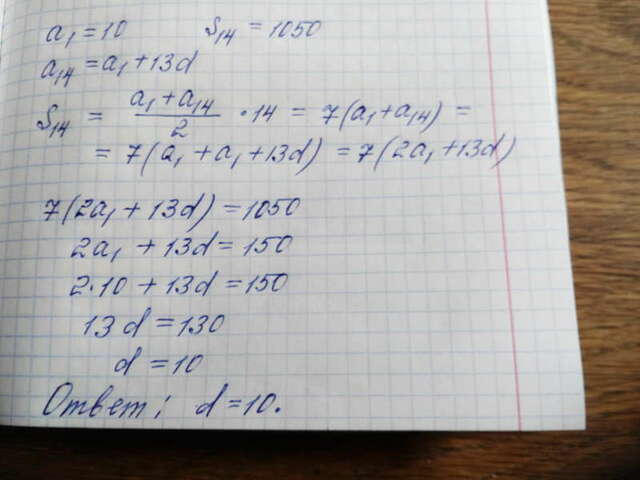 a₁ = 10 S₁₄ = 1050
a₁₄ = a₁ + 13d
S₁₄ = (a₁ + a₁₄)/2 · 14 = 7(a₁ + a₁₄) =
= 7(a₁ + a₁ + 13d) = 7(2a₁ + 13d)
7(2a₁ + 13d) = 1050
2a₁ + 13d = 150
2·10 + 13d = 150
13d = 130
d = 10
Ответ: d = 10.